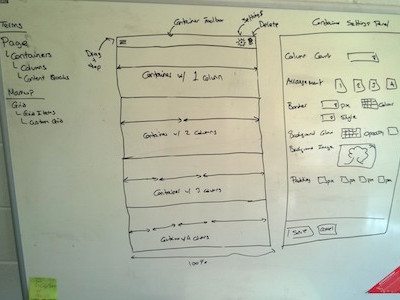 Terms
Page
Containers
Columns
Content Blocks
Markup
Grid
Grid Items
Custom Grid
Drag
+
Drop
Container Toolbar
Settings
Delete
Container w/ 1 column
Container w/ 2 columns
Container w/ 3 columns
Container w/ 4 columns
100%
Container Settings Panel
Column Count
Arrangement 1 2 3 4
Border px Color
Style
Background Color opacity
Background Image
Padding px px px px
Save Cancel